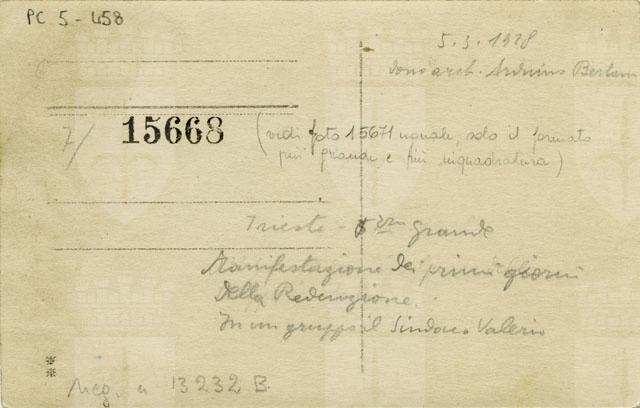 PC 5-458
5.3.1928
dono arch. Arduino Berlam
7/
15668
(vedi foto 15671 uguale, solo il formato
più grande e più inquadratura)
Trieste - grande
Manifestazione dei primi giorni
della Redenzione.
In un gruppo il Sindaco Valerio
Neg. n 13232 B